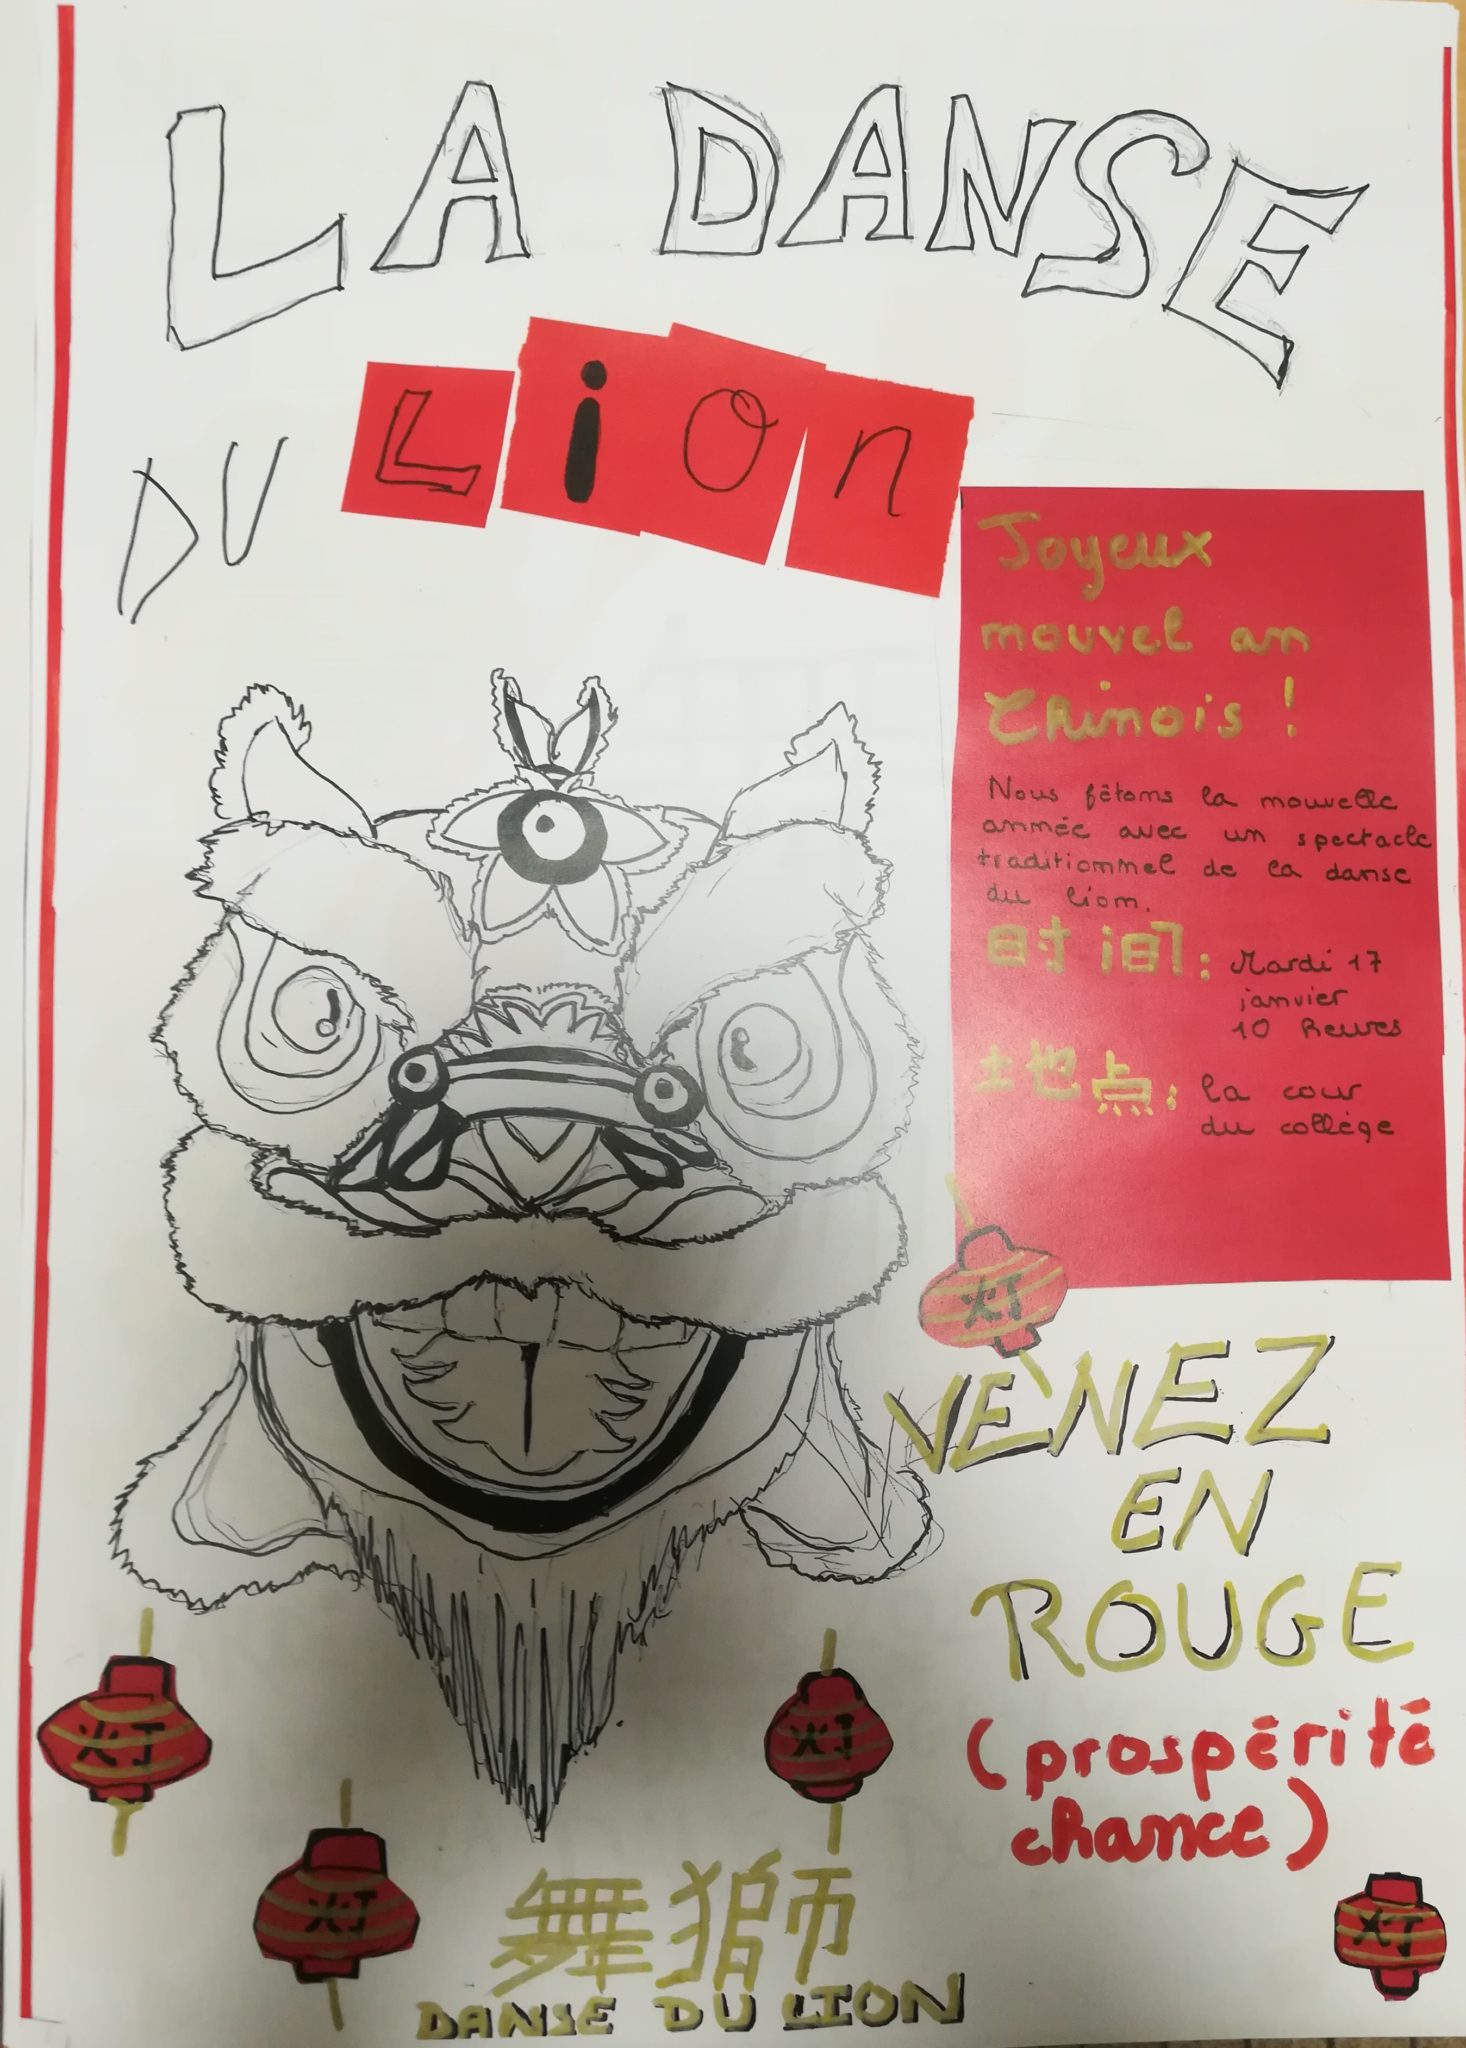 LA DANSE
DU LiOn
Joyeux
nouvel an
Chinois !
Nous fêtons la nouvelle
année avec un spectacle
traditionnel de la danse
du lion.
时间: Mardi 17
janvier
10 heures
土地点: la cour
du collège
灯
VENEZ
EN
ROUGE
(prospérité
chance)
灯
灯
灯
灯
舞獅
DANSE DU LION